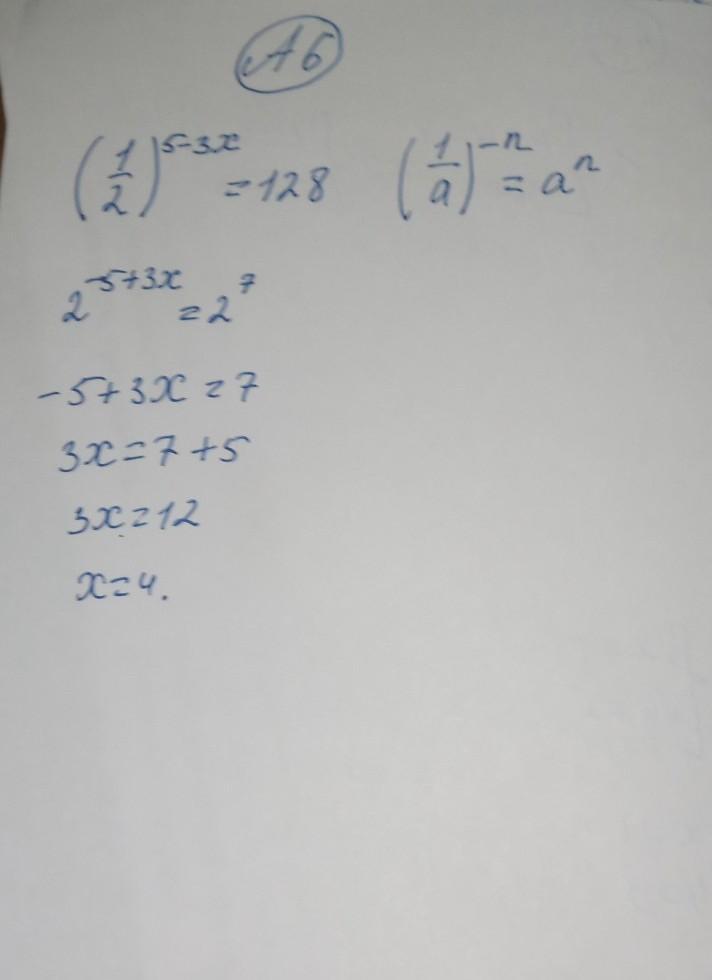 А6
(1/2)^(5-3x) = 128 (1/a)^(-n) = a^n
2^(-5+3x) = 2^7
-5+3x=7
3x=7+5
3x=12
x=4.